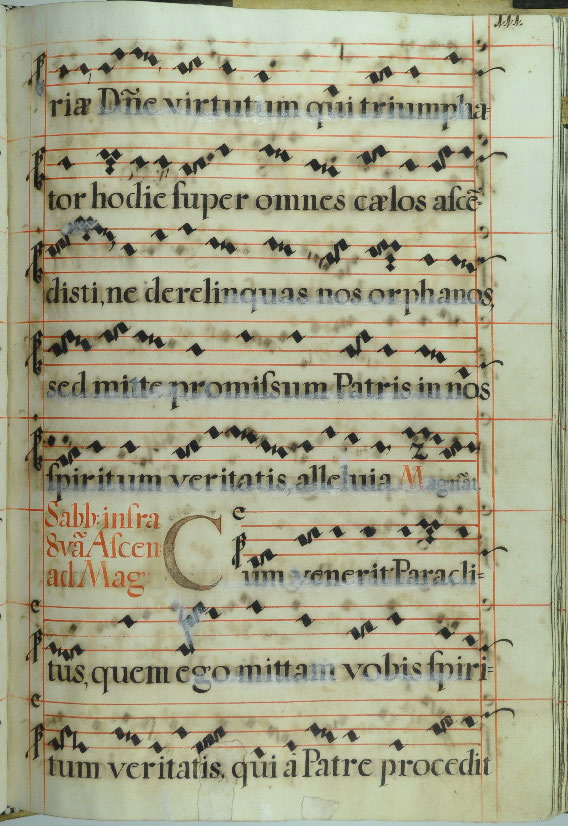 riæ Dñe virtutum qui triumpha-
tor hodie ſuper omnes cælos aſcẽ-
diſti, ne derelinquas nos orphanos,
sed mitte promiſsum Patris in nos
ſpiritum veritatis, alleluia Magnĩat
Sabb. infra
8vã Aſcen
ad Mag
Cum venerit Paracli-
tus, quem ego mittam vobis ſpiri-
tum veritatis, qui à Patre procedit